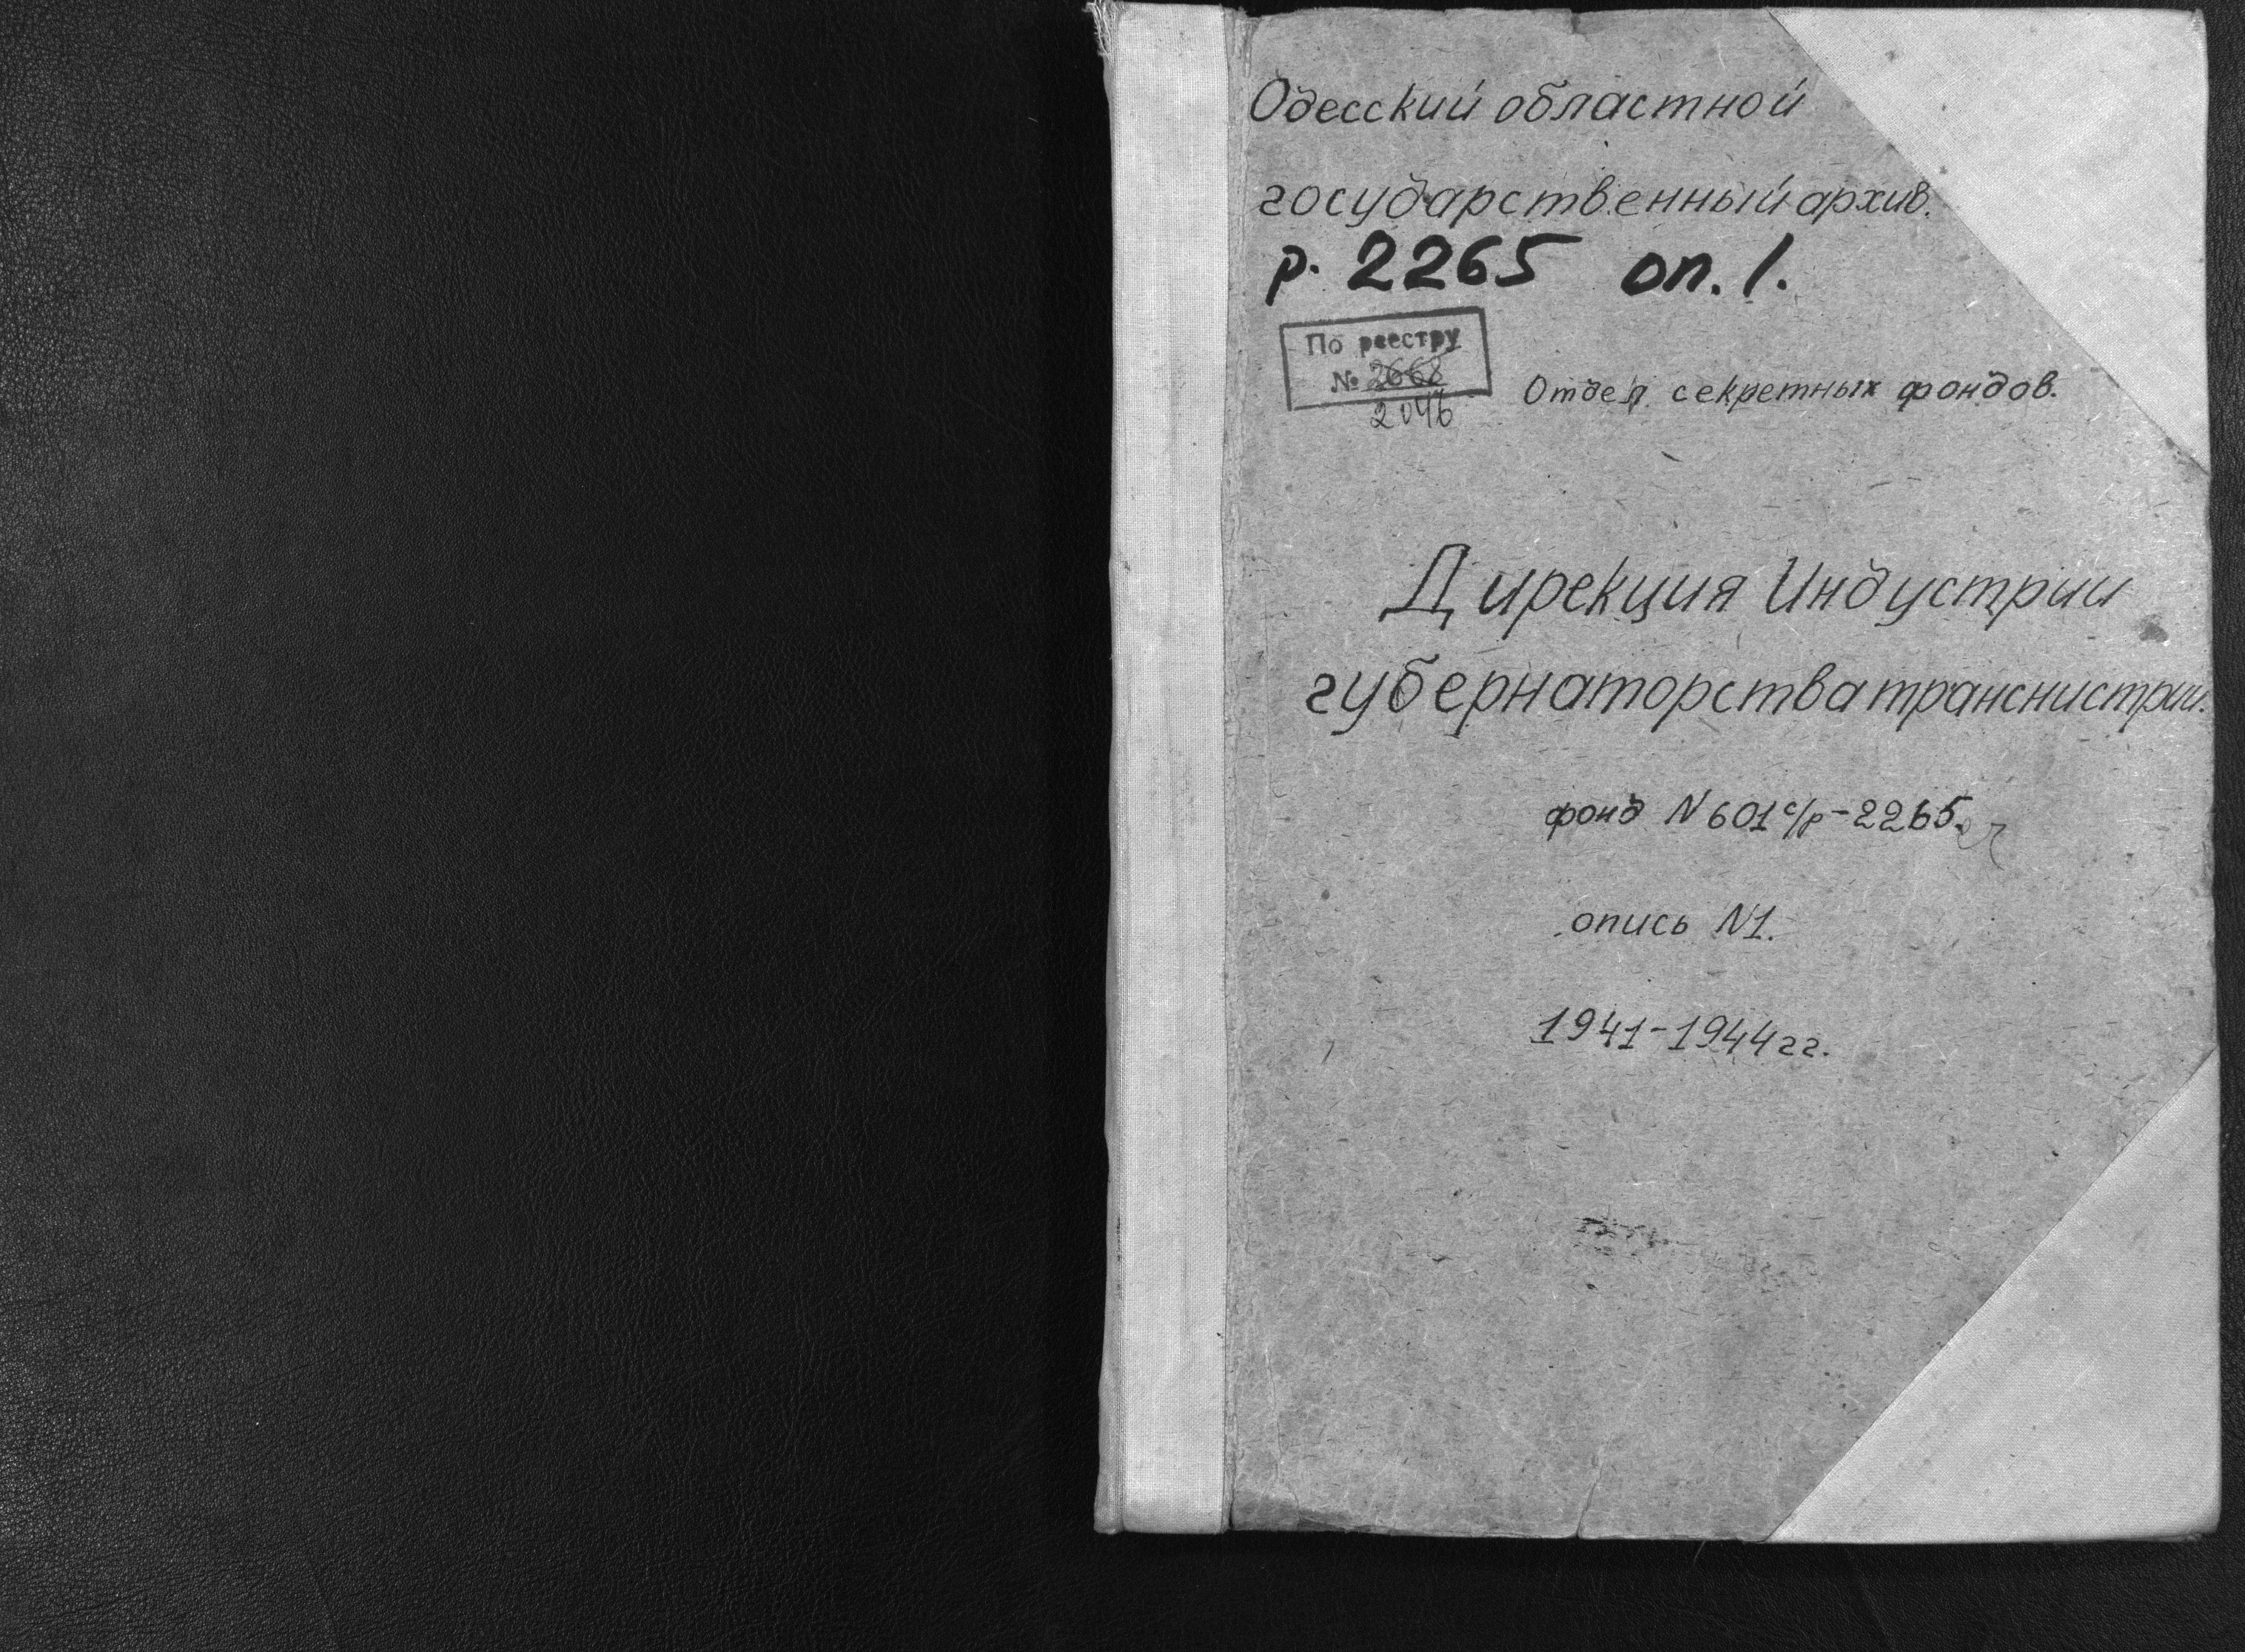 Одесский областной
государственный архив.
р. 2265 оп. 1.
По реестру
№ 2668
2046
Отдел секретных фондов.
Дирекция Индустрии
губернаторства транснистрии.
фонд N 601 с/р-2265.
опись N1.
1941-1944 гг.